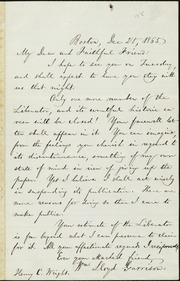 Boston, Dec. 21, 1865.
My Dear and Faithful Friend:
I hope to see you on Tuesday,
and shall expect to have you stay with
us that night.
Only one more number of the
Liberator, and its eventful historic ca-
reer will be closed! Your farewell let-
ter shall appear in it. You can imagine,
from the feelings you cherish in regard to
its discontinuance, something of my own
state of mind in view of giving up the
paper. Yes, I think I am acting wisely
in suspending its publication. There are
more reasons for doing so than I care to
make public.
Your estimate of the Liberator is
far beyond what I can presume to claim
for it. All your affectionate regards I reciprocate.
Ever your attached friend,
Wm. Lloyd Garrison.
Henry C. Wright.